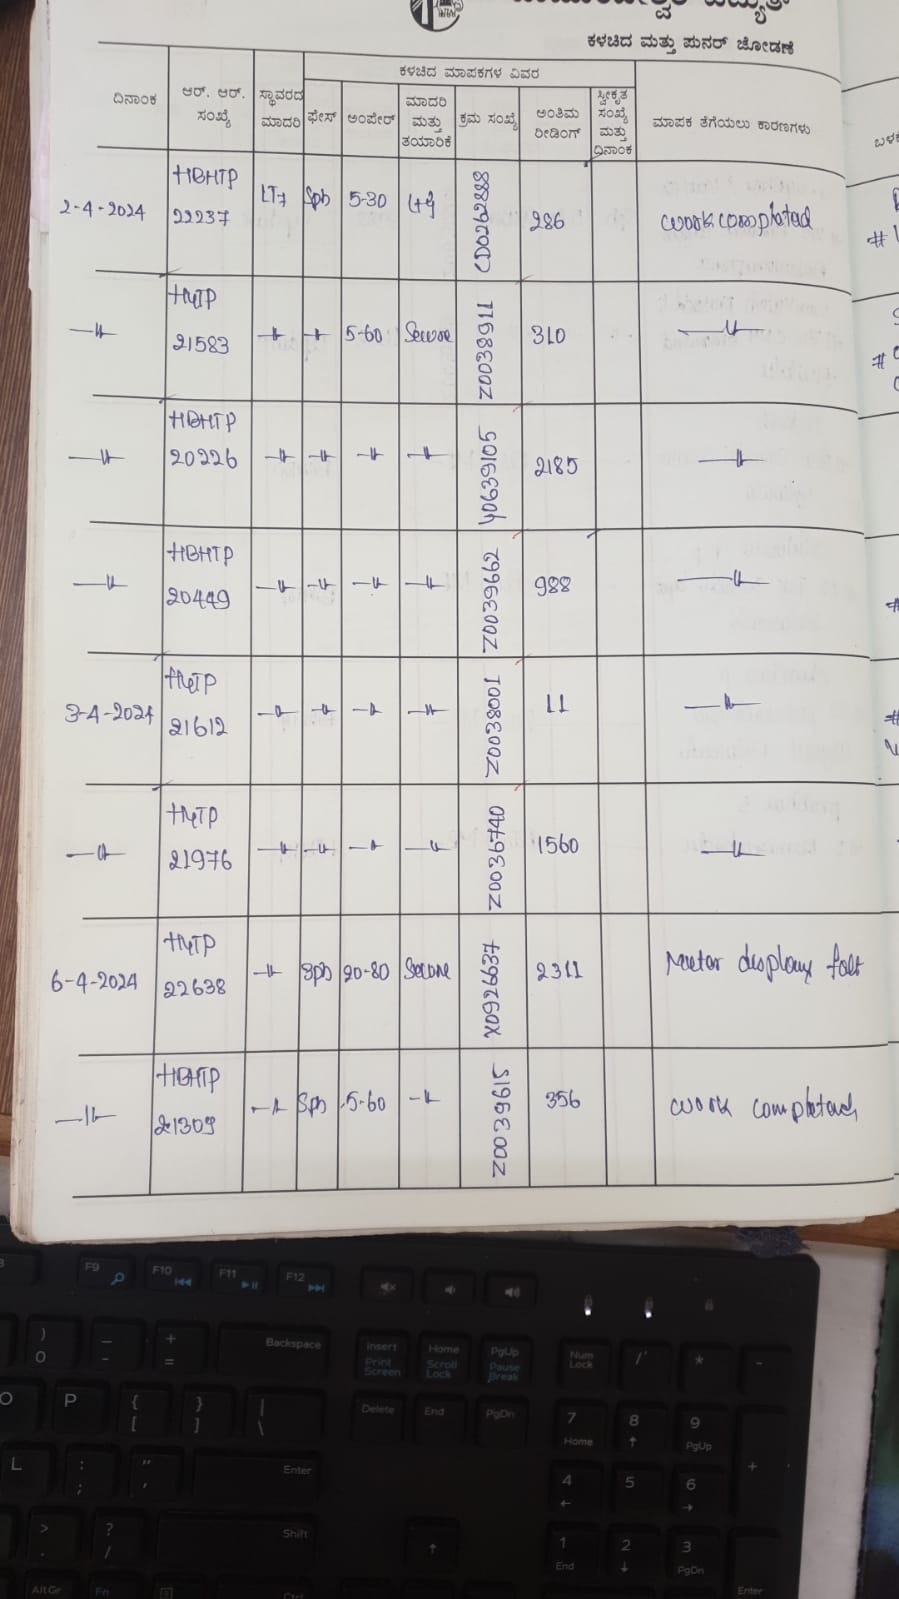 ಕಳಚಿದ ಮತ್ತು ಪುನರ್ ಜೋಡಣೆ
ದಿನಾಂಕ
ಆರ್. ಆರ್. ಸಂಖ್ಯೆ
ಸ್ಥಾವರದ ಮಾದರಿ
ಕಳಚಿದ ಮಾಪಕಗಳ ವಿವರ
ಫೇಸ್
ಅಂಪೇರ್
ಮಾದರಿ ಮತ್ತು ತಯಾರಿಕೆ
ಕ್ರಮ ಸಂಖ್ಯೆ
ಅಂತಿಮ ರೀಡಿಂಗ್
ಸ್ವೀಕೃತ ಸಂಖ್ಯೆ ಮತ್ತು ದಿನಾಂಕ
ಮಾಪಕ ತೆಗೆಯಲು ಕಾರಣಗಳು
2-4-2024 HBHTP 22237 LT7 Sph 5-30 L+g CD0262888 286 work completed
-〃- HyTP 21583 -〃- -〃- 5-60 Secure Z0038911 310 -〃-
-〃- HBHTP 20226 -〃- -〃- -〃- -〃- Y0639105 2185 -〃-
-〃- HBHTP 20449 -〃- -〃- -〃- -〃- Z0039662 988 -〃-
3-4-2024 HyTP 21612 -〃- -〃- -〃- -〃- Z0038001 11 -〃-
-〃- HyTP 21976 -〃- -〃- -〃- -〃- Z0036740 1560 -〃-
6-4-2024 HyTP 22638 -〃- Sph 20-80 Secure X0926637 2311 Meter display
-〃- HBHTP 21309 -〃- Sph 5-60 -〃- Z0039615 356 work completed
F9 F10 F11 F12
) 0 _ - + = Backspace Insert Print Screen Home Scroll Lock PgUp Pause Break Num Lock / * -
O P { [ } ] | \ Delete End PgDn 7 Home 8 9 PgUp +
L : ; " ' Enter 4 5 6
> . ? / Shift 1 End 2 3 PgDn
Alt Gr Fn Ctrl Enter